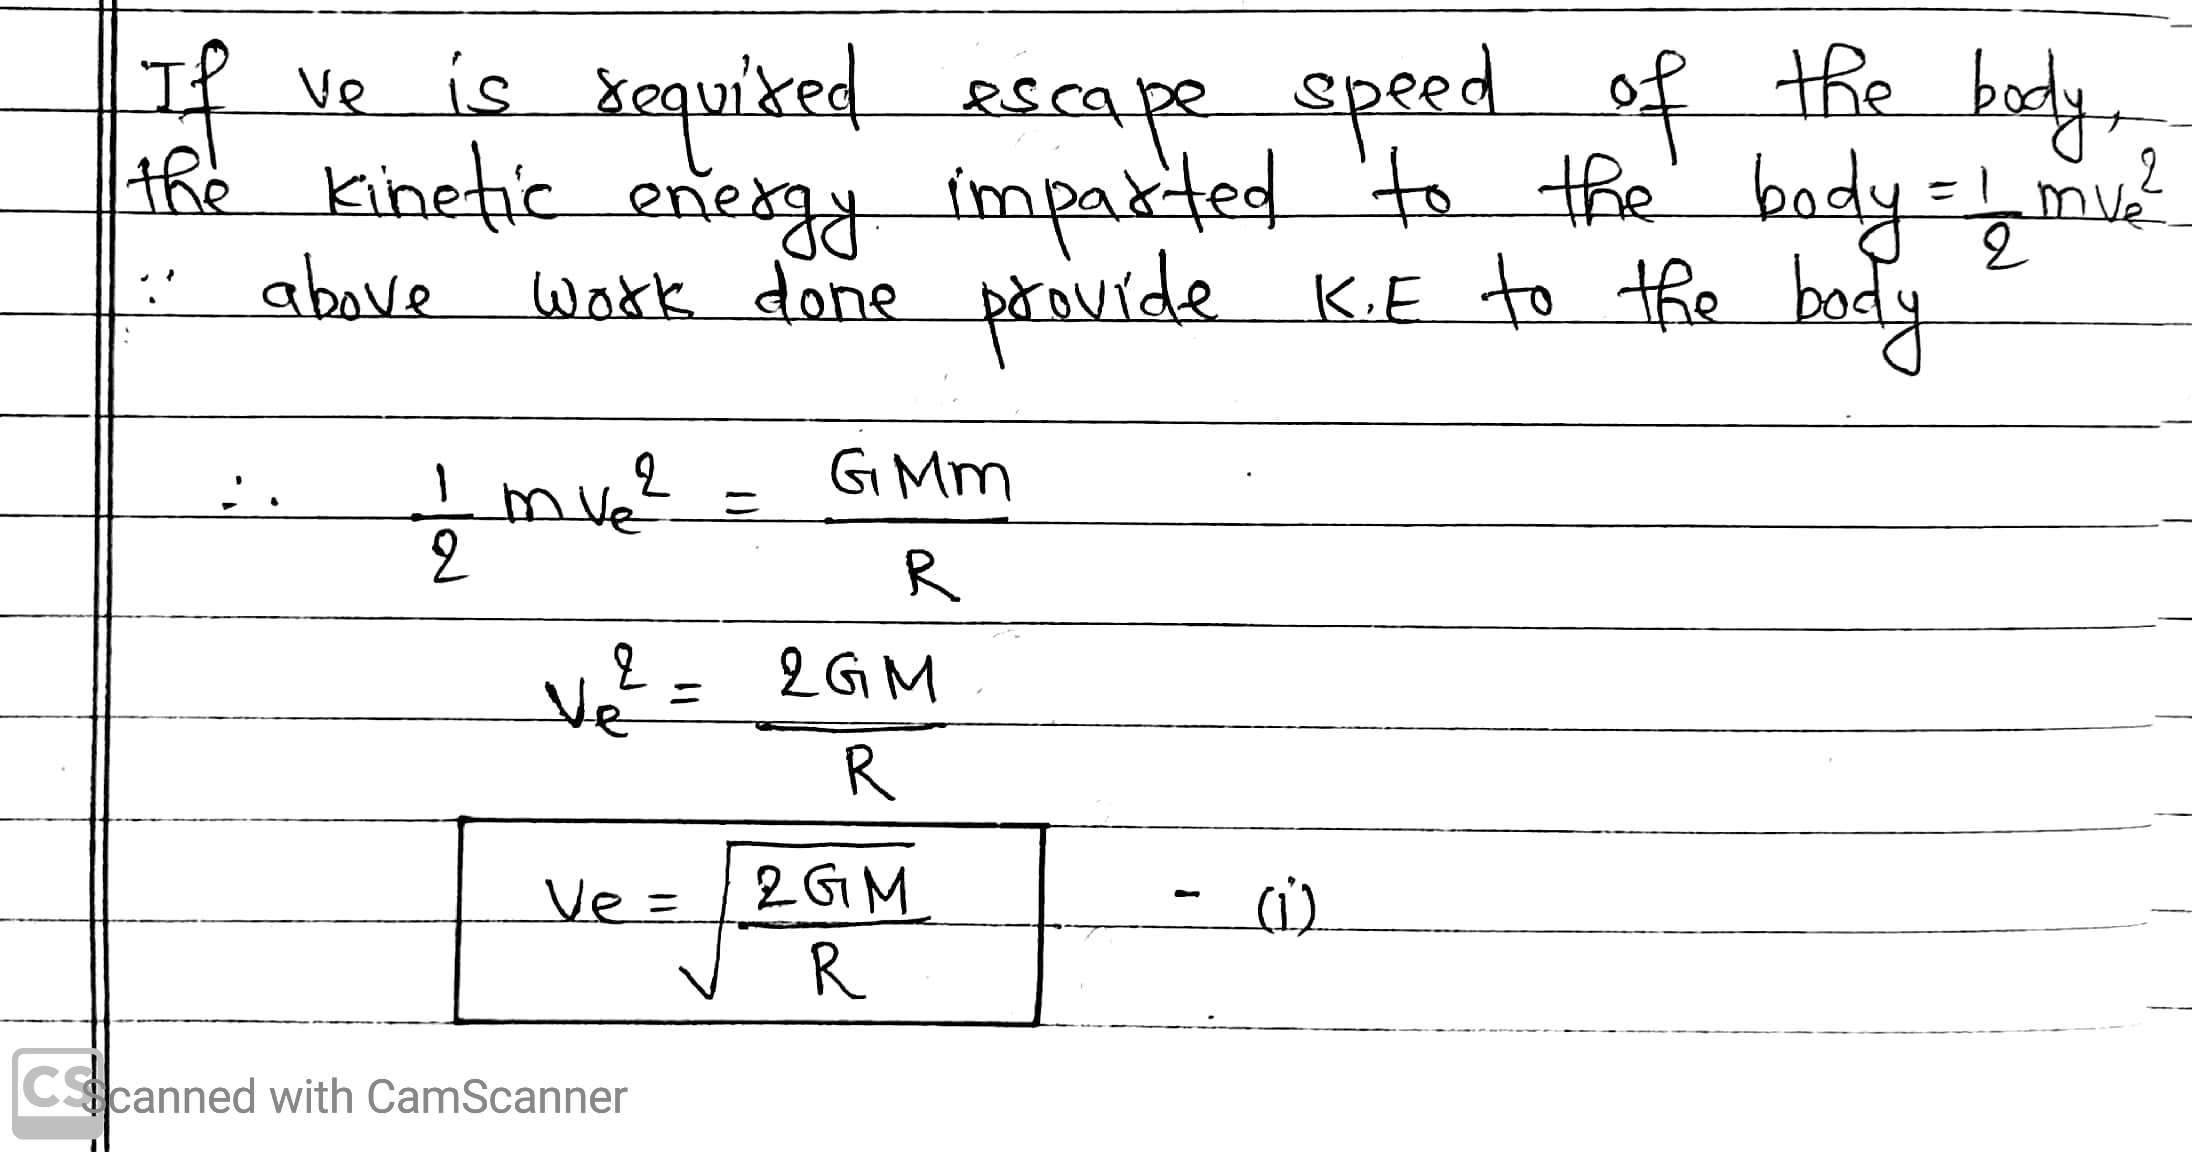 If ve is required escape speed of the body,
the kinetic energy imparted to the body = 1/2 mve²
∵ above work done provide K.E to the body
∴ 1/2 mve² = GMm/R
ve² = 2GM/R
ve = √(2GM/R) - (i)
CS Scanned with CamScanner